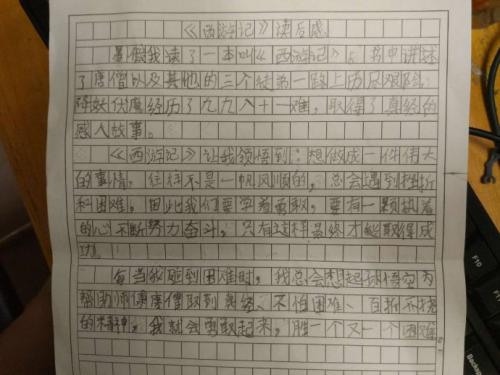 《西游记》读后感
暑假我读了一本叫《西游记》。书中讲述
了唐僧以及其他的三个徒弟一路上历尽艰险
降妖伏魔经历了九九八十一难，取得了真经的
感人故事。
《西游记》让我领悟到：想做成一件伟大
的事情，往往不是一帆风顺的，总会遇到挫折
和困难，因此我们要学着勇敢，要有一颗执着
的心不断努力奋斗，只有这样最终才能取得成
功。
每当我碰到困难时，我总会想起孙悟空为
帮助师傅唐僧取到真经、不怕困难、百折不挠
的精神，我就会勇敢起来，胜一个又一个困难
F10
Backsp